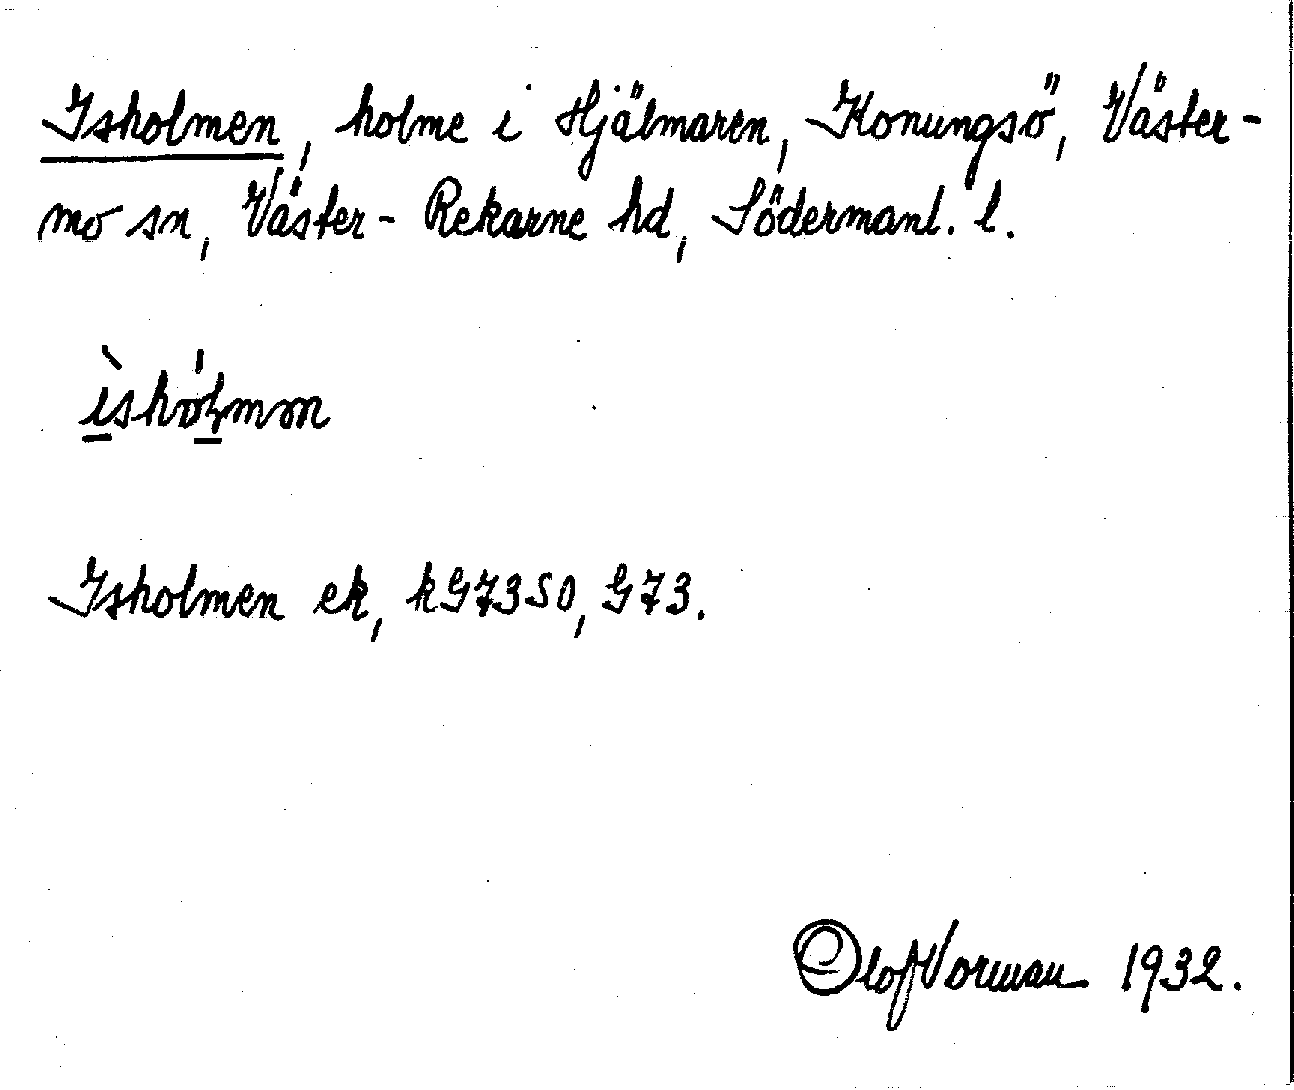 Isholmen, holme i Hjälmaren, Konungsö, Väster-
mo sn, Väster-Rekarne hd, Södermanl. l.
ìshólmɷn
Isholmen ek, kG7350, G73.
Olof Vorman 1932.